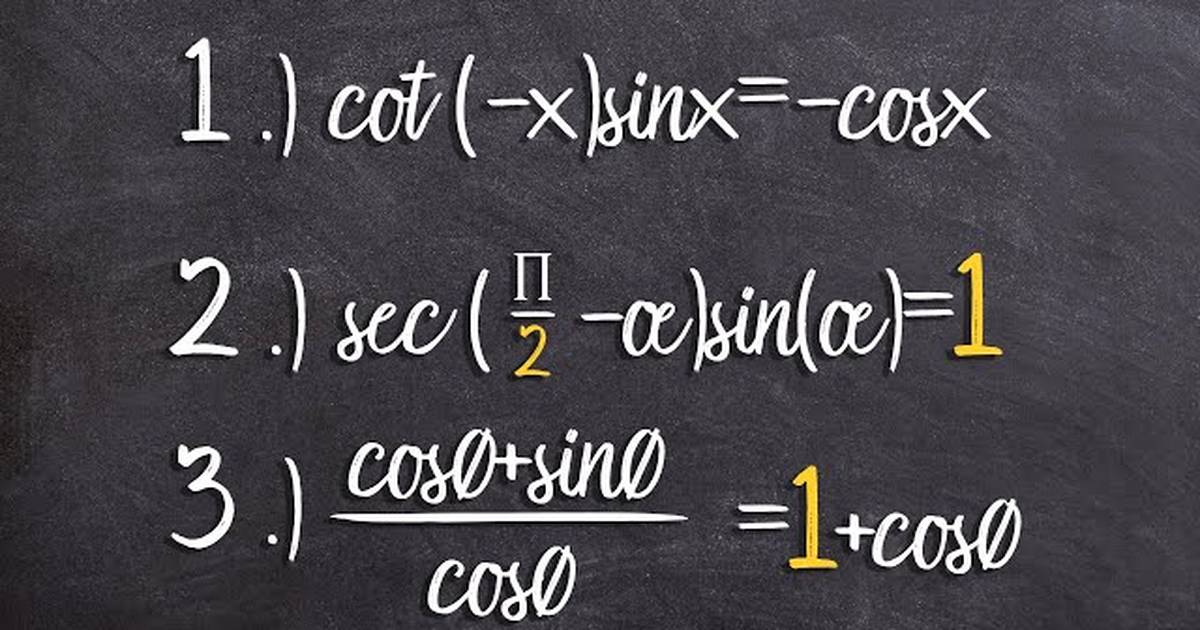 1.) cot(-x)sinx=-cosx
2.) sec(Π/2 -œ)sin(œ)=1
3.) cosØ+sinØ/cosØ =1+cosØ